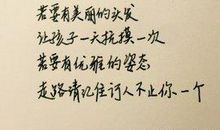 若要有美丽的头发
让孩子一天抚摸一次
若要有优雅的姿态
走路请记住行人不止你一个